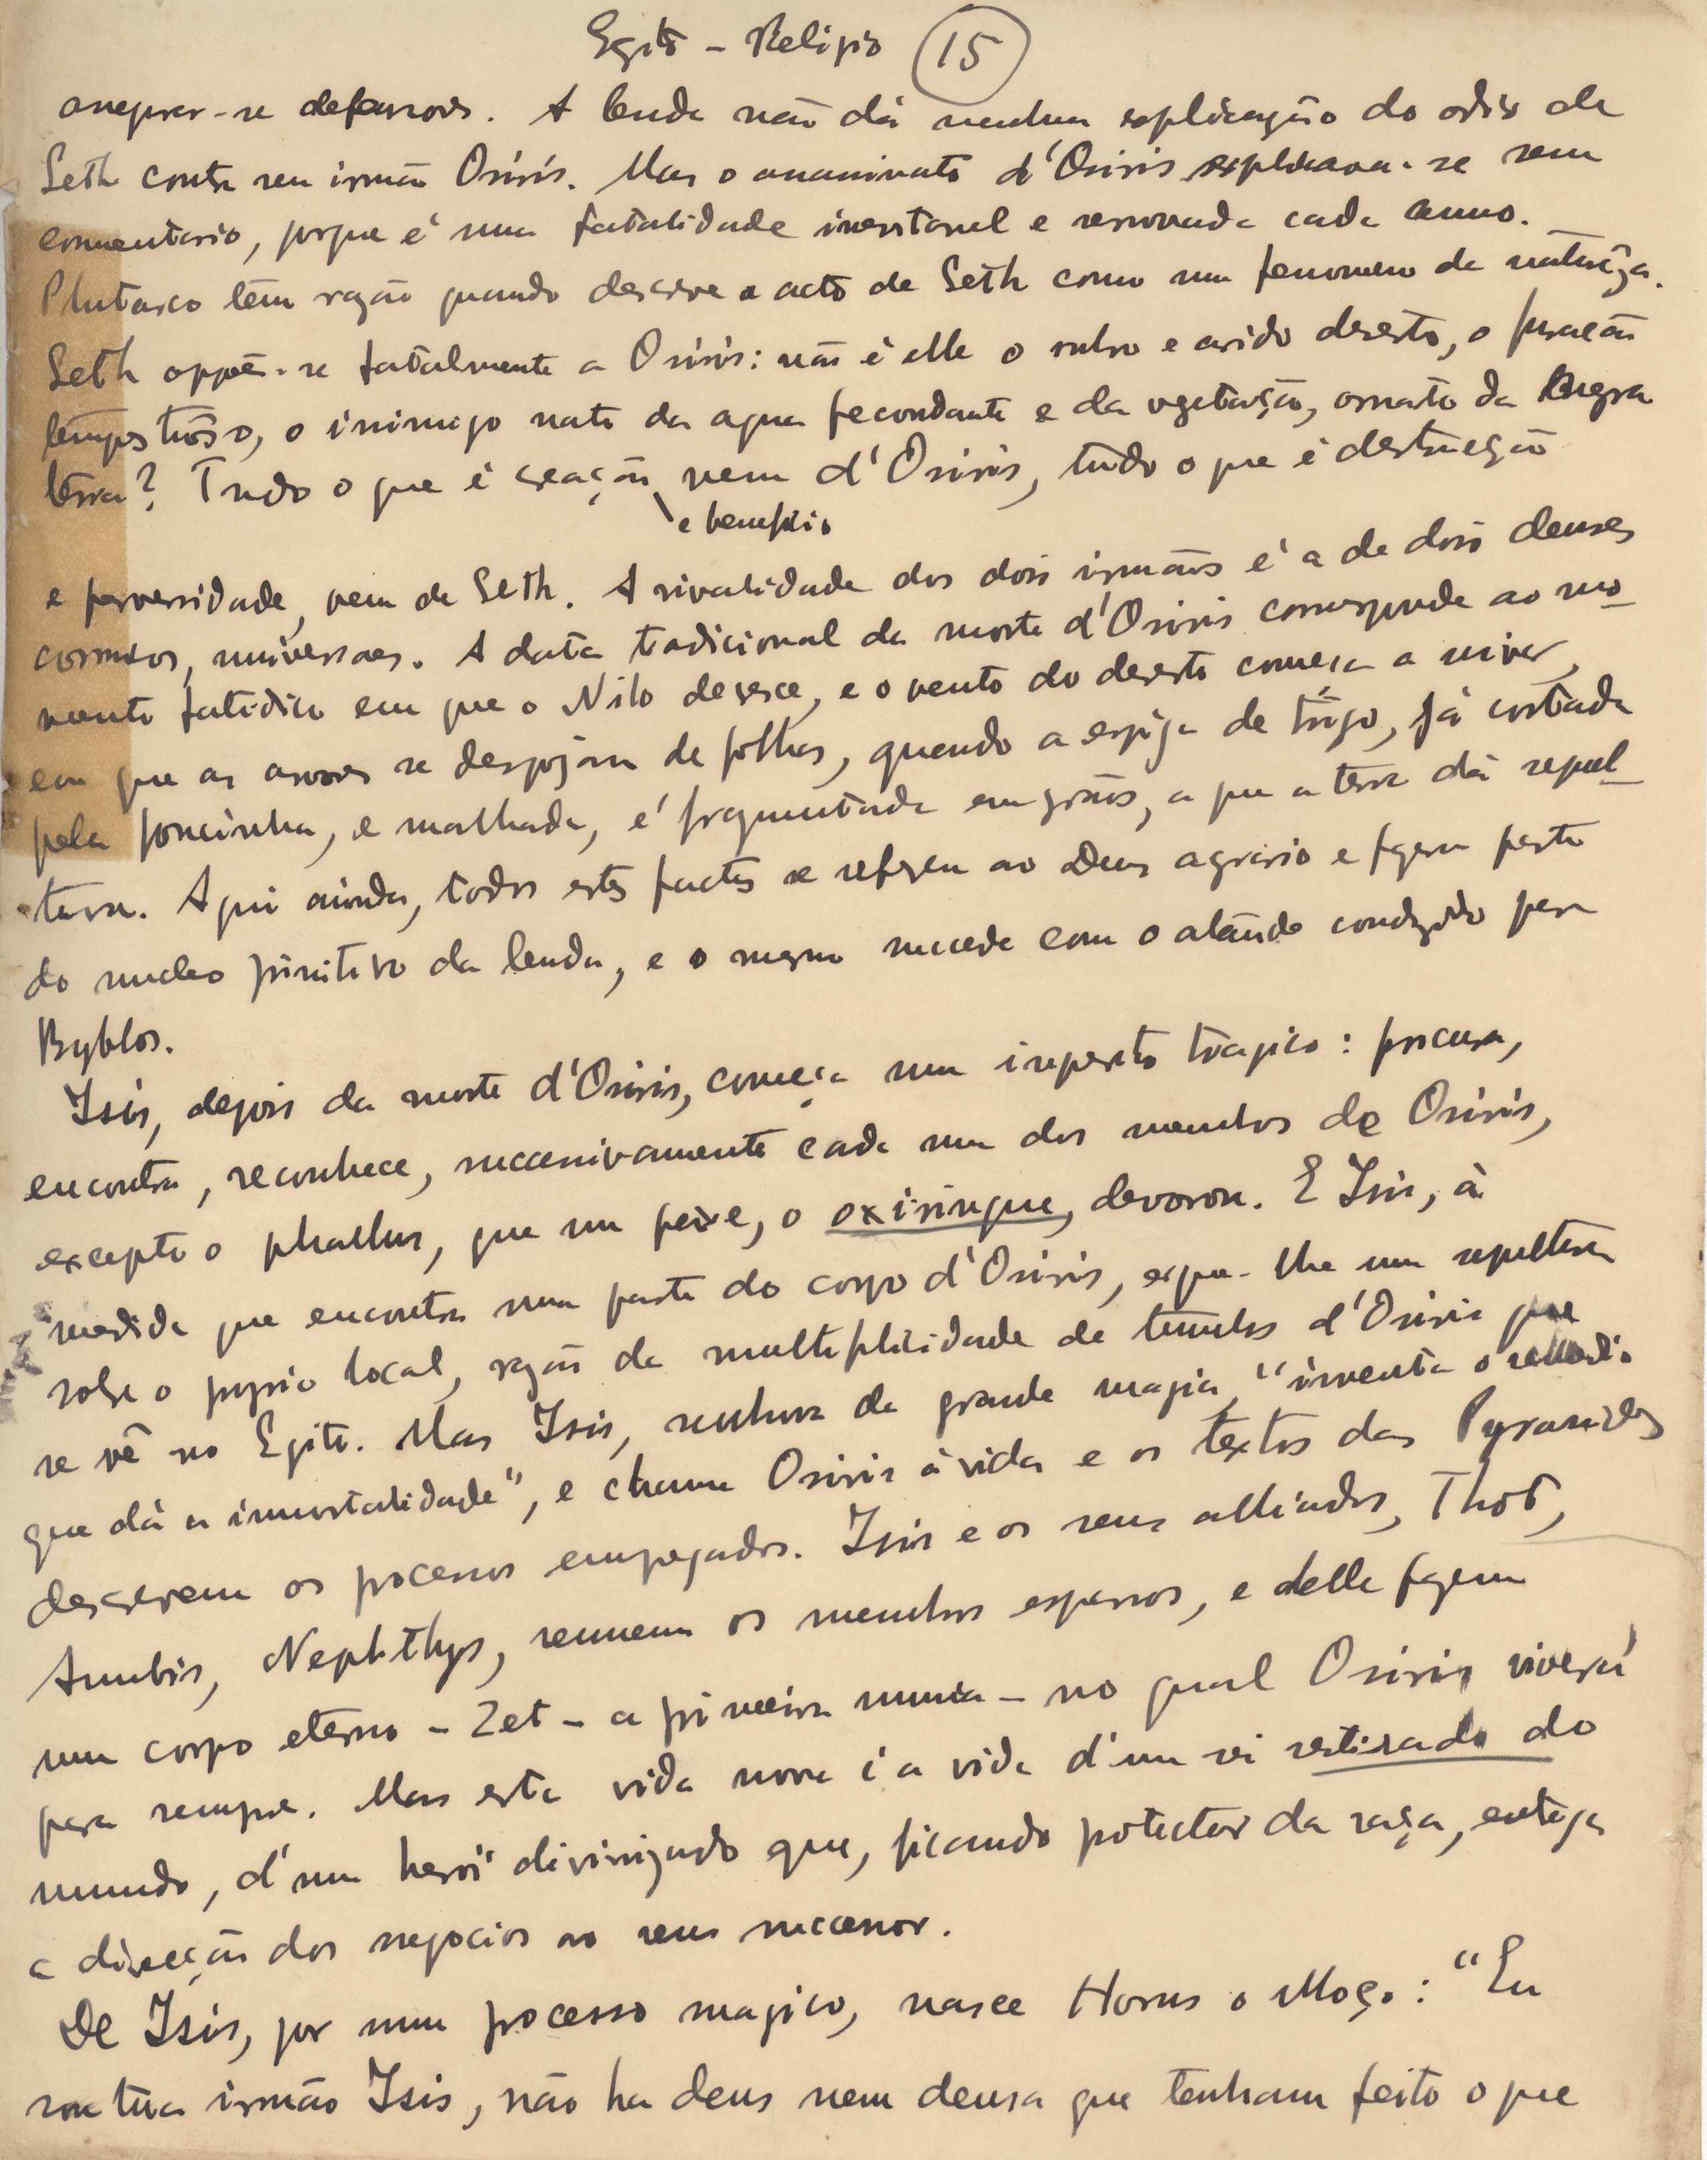 Egito - Religião 15
defensores. A lenda não dá nenhuma explicação do odio de
Seth contra seu irmão Osiris. Mas o assassinato d'Osiris explicava-se sem
commentario, porque é uma fatalidade inevitavel e renovada cada anno.
Plutarco têm razão quando descreve o acto de Seth como um fenomeno da natureza.
Seth oppõe-se fatalmente a Osiris: não é elle o rubro e arido deserto, o furacão
tempestuoso, o inimigo nato da agua fecundante e da vegetação, ornato da Negra
terra? Tudo o que é creação vem d'Osiris, tudo o que é destruição
e beneficio
e perversidade, vem de Seth. A rivalidade dos dois irmãos é a de dois deuses
cosmicos, universaes. A data tradicional da morte d'Osiris corresponde ao mo-
mento fatidico em que o Nilo decresce, e o vento do deserto começa a viver,
em que as arvores se despojam de folhas, quando a espiga de trigo, já cortada
pela foucinha, e malhada, é fragmentada em grãos, a que a terra dá sepul-
tura. Aqui ainda, todos estes factos se referem ao Deus agrario e fazem parte
do nucleo primitivo da lenda, e o mesmo succede com o ataúde conduzido para
Byblos.
Isis, depois da morte d'Osiris, começa um inquerito tragico: procura,
encontra, reconhece, successivamente cada um dos membros de Osiris,
excepto o phallus, que um peixe, o oxiringue, devorou. E Isis, à
medida que encontra uma parte do corpo d'Osiris, ergue-lhe uma sepultura
sobre o proprio local, razão da multiplicidade de tumulos d'Osiris que
se vê no Egito. Mas Isis, senhora da grande magia, "inventa o remedio
que dá a immortalidade", e chama Osiris á vida e os textos das Pyramides
descrevem os processos empregados. Isis e os seus alliados, Thot,
Anubis, Nephthys, reunem os membros esparsos, e delle fazem
um corpo eterno - Zet - a primeira mumia - no qual Osiris viverá
para sempre. Mas esta vida nova é a vida d'um rei retirado do
mundo, d'um heroi divinizado que, ficando protector da raça, entrega
a direcção dos negocios ao seus successor.
De Isis, por um processo magico, nasce Horus o Moço: "Eu
sou tua irmão Isis, não ha deus nem deusa que tenham feito o que